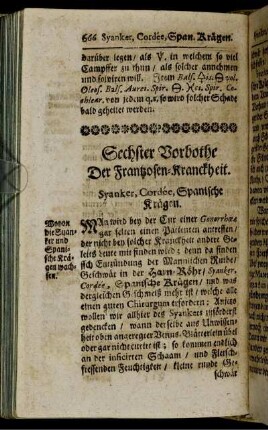 666 Syanker, Cordée, Span. Krägen.
darüber legen / als V. in welchem so viel
Campffer zu thun / als solcher annehmen
und solviren will. Item Bals. vol.
Oleos. Bals. Aures. Spir. Spir. Co-
chlear. von jedem q.s. so wird solcher Schade
bald geheilet werden.
Sechster Vorbothe
Der Frantzosen-Kranckheit.
Syanker, Cordée, Spanische
Krägen.
Wovon
die Syan-
ker und
Spani-
sche Krä-
gen wach-
sen.
MAn wird bey der Cur einer Gonorrhœa
gar selten einen Patienten antreffen /
der nicht bey solcher Kranckheit andere Ge-
leits Leute mit finden wird; denn da finden
sich Entzündung der Mannlichen Ruthe /
Geschwär in der Harn-Röhr / Syanker,
Cordée, Spanische Krägen / und was
dergleichen Geschmeiß mehr ist / welche alle
einen guten Chirurgum erfordern; Anjetzo
wollen wir allhier des Syankers zuförderst
gedencken / wann derselbe aus Unwissen-
heit oben angeregter Venus-Blätterlein übel
oder gar nicht curiret ist; so kommen endlich
an der inficirten Schaam / und Fleisch-
fressenden Feuchtigkeit / kleine runde Ge-
schwär